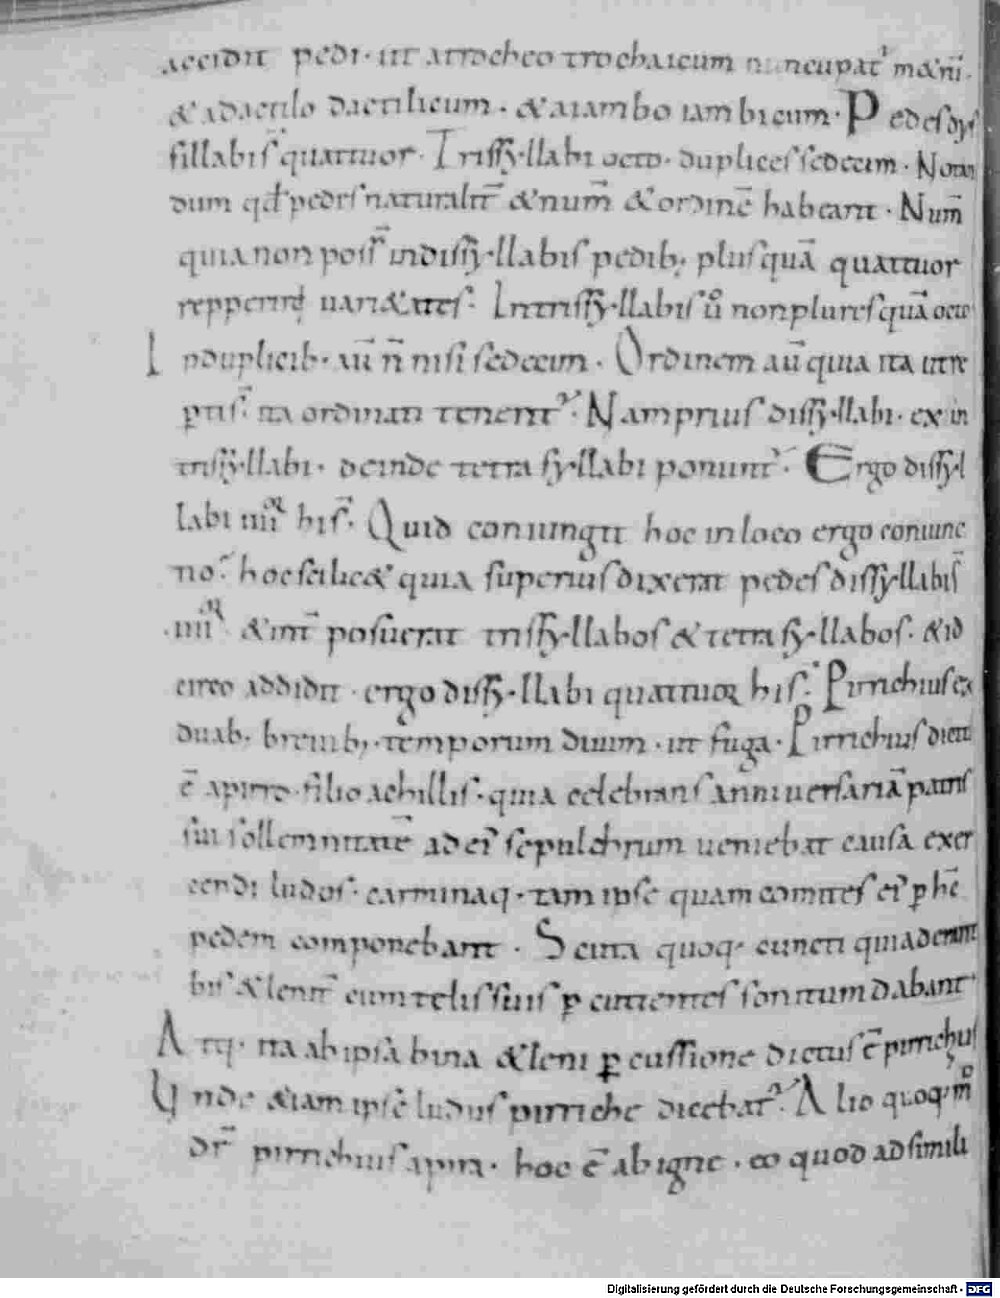 accidit pedi· ut a trocheo trochaicum nuncupat᷑ metrū·
& a dactilo dactilicum· & a iambo iambicum· Pedes dys
sillabis̄ quattuor· Trissyllabi octo· duplices sedecim· Notan
dum qđ pedes naturalit̄ & num̄ & ordinē habeant· Num̄
quia non poss̄ in dissyllabis pedib; plus quā quattuor
repperiri uari&ates· In trissyllabis ū non plures quā octo
In duplicib· aū n̄ nisi sedecim· Ordinem aū quia ita ut in
ꝑtis̄ ita ordinati tenent᷑· Nam prius dissyllabi· ex in
trissyllabi· deinde tetrasyllabi ponunt᷑· Ergo dissyl
labi iiiior his̄· Quid coniungit hoc in loco ergo coniunc
no᷑· hoc scilic& quia superius dixerat pedes dissyllabis̄
·iiiior & int̄ posuerat trissyllabos & tetrasyllabos· & id
circo addidit· ergo dissyllabi quattuor his̄· Pirrichius ex
duab; breuib;· temporum duum· ut fuga· Pirrichius dict
ē a pirro· filio achillis· quia celebrans anniuersariā patris
sui sollemnitatē ad ei᷒ sepulchrum ueniebat causa exer
cendi ludos· carminaq· tam ipse quam comites ei᷒ ꝑ hē
pedem componebant· Scuta quoq· cuncti quia derant
bis & lenit̄ cum telis suis ꝑcutientes sonitum dabant
Atq· ita ab ipsa bina & leni ꝑcussione dictus ē pirrichius
Unde &iam ipsē ludus pirriche dicebat᷑· Alio quoq· mo
dr̄ pirrichius a pira· hoc ē ab igne· eo quod ad simili
Digitalisierung gefördert durch die Deutsche Forschungsgemeinschaft - DFG